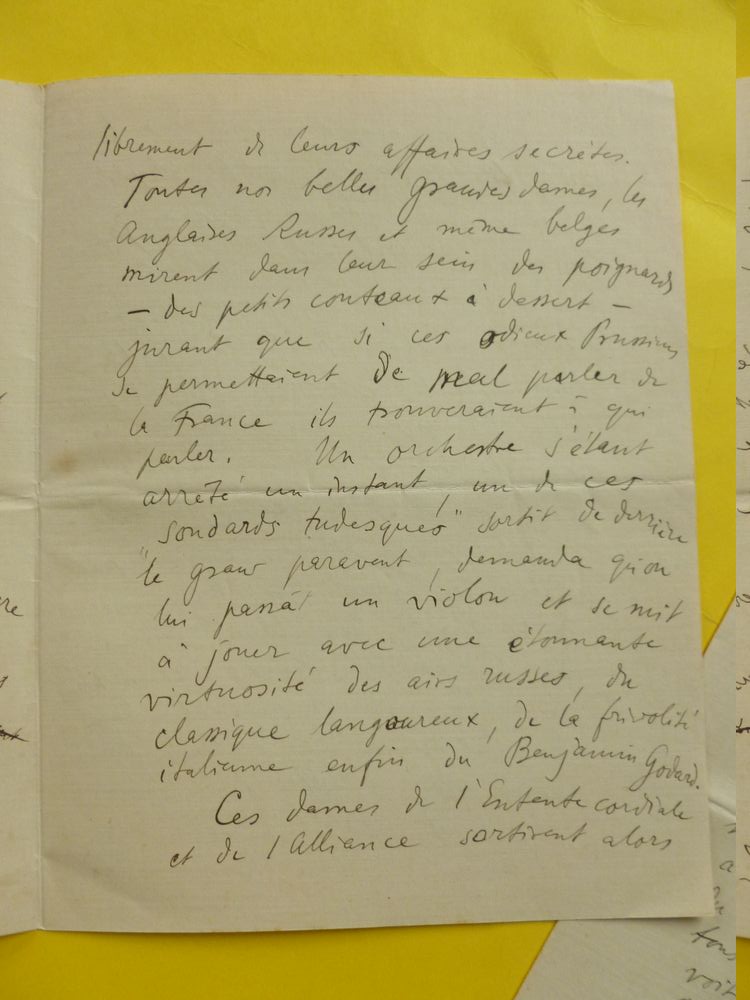 librement de leurs affaires secrètes.
Toutes nos belles grandes dames, les
Anglaises Russes et même belges
mirent dans leur sein des poignards
— des petits couteaux à dessert —
jurant que si ces odieux Prussiens
se permettaient de mal parler de
la France ils trouveraient à qui
parler. Un orchestre s'étant
arrêté un instant, un de ces
"soudards tudesques" sortit de derrière
le grand paravent, demanda qu'on
lui passât un violon et se mit
à jouer avec une étonnante
virtuosité des airs russes, du
classique langoureux, de la frivolité
italienne enfin du Benjamin Godard.
Ces dames de l'Entente cordiale
et de l'Alliance sortirent alors
tous
voit